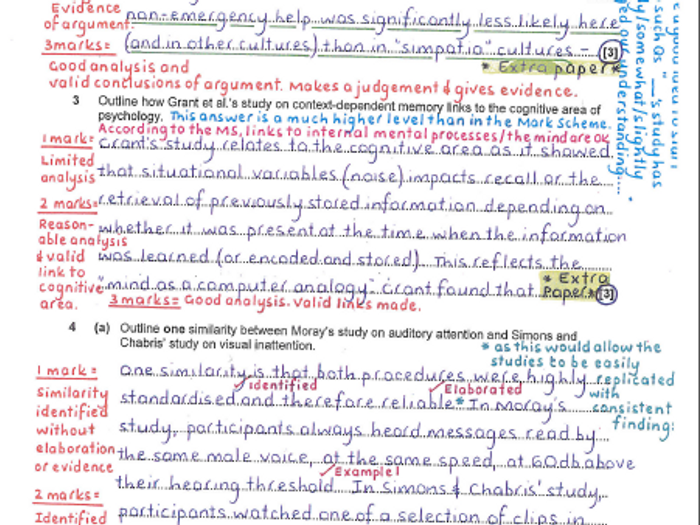 Evidence of argument.
non-emergency help was significantly less likely here
3marks=
(and in other cultures) than in "simpatia" cultures – [3]
* Extra paper*
Good analysis and
valid conclusions of argument. Makes a judgement & gives evidence.
such Qs "—'s study has
y/somewhat/slightly
ed our understanding....
3 Outline how Grant et al.'s study on context-dependent memory links to the cognitive area of
psychology. This answer is a much higher level than in the Mark Scheme.
According to the MS, links to internal mental processes/the mind are ok
1 mark:
Limited
analysis
2 marks=
Reason-
able analysis
& valid
link to
cognitive
area.
Grant's study relates to the cognitive area as it showed
that situational variables (noise) impacts recall or the
retrieval of previously stored information depending on
whether it was present at the time when the information
was learned (or encoded and stored). This reflects the
"mind as a computer analogy". Grant found that * Extra Paper* [3]
3marks= Good analysis. Valid links made.
4 (a) Outline one similarity between Moray's study on auditory attention and Simons and
Chabris' study on visual inattention.
* as this would allow the
studies to be easily
replicated
with
consistent
finding:
1 mark:
Similarity
identified
without
elaboration
or evidence
2 marks=
Identified
One similarity is that both procedures were highly
identified
Elaborated
standardised and therefore reliable* In Moray's
study, participants always heard messages read by
the same male voice, at the same speed, at 60db above
Example1
their hearing threshold. In Simons & Chabris' study,
participants watched one of a selection of clips in